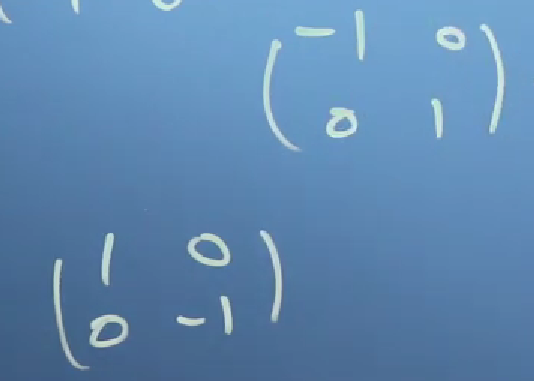 ( -1 0
0 1 )
( 1 0
0 -1 )